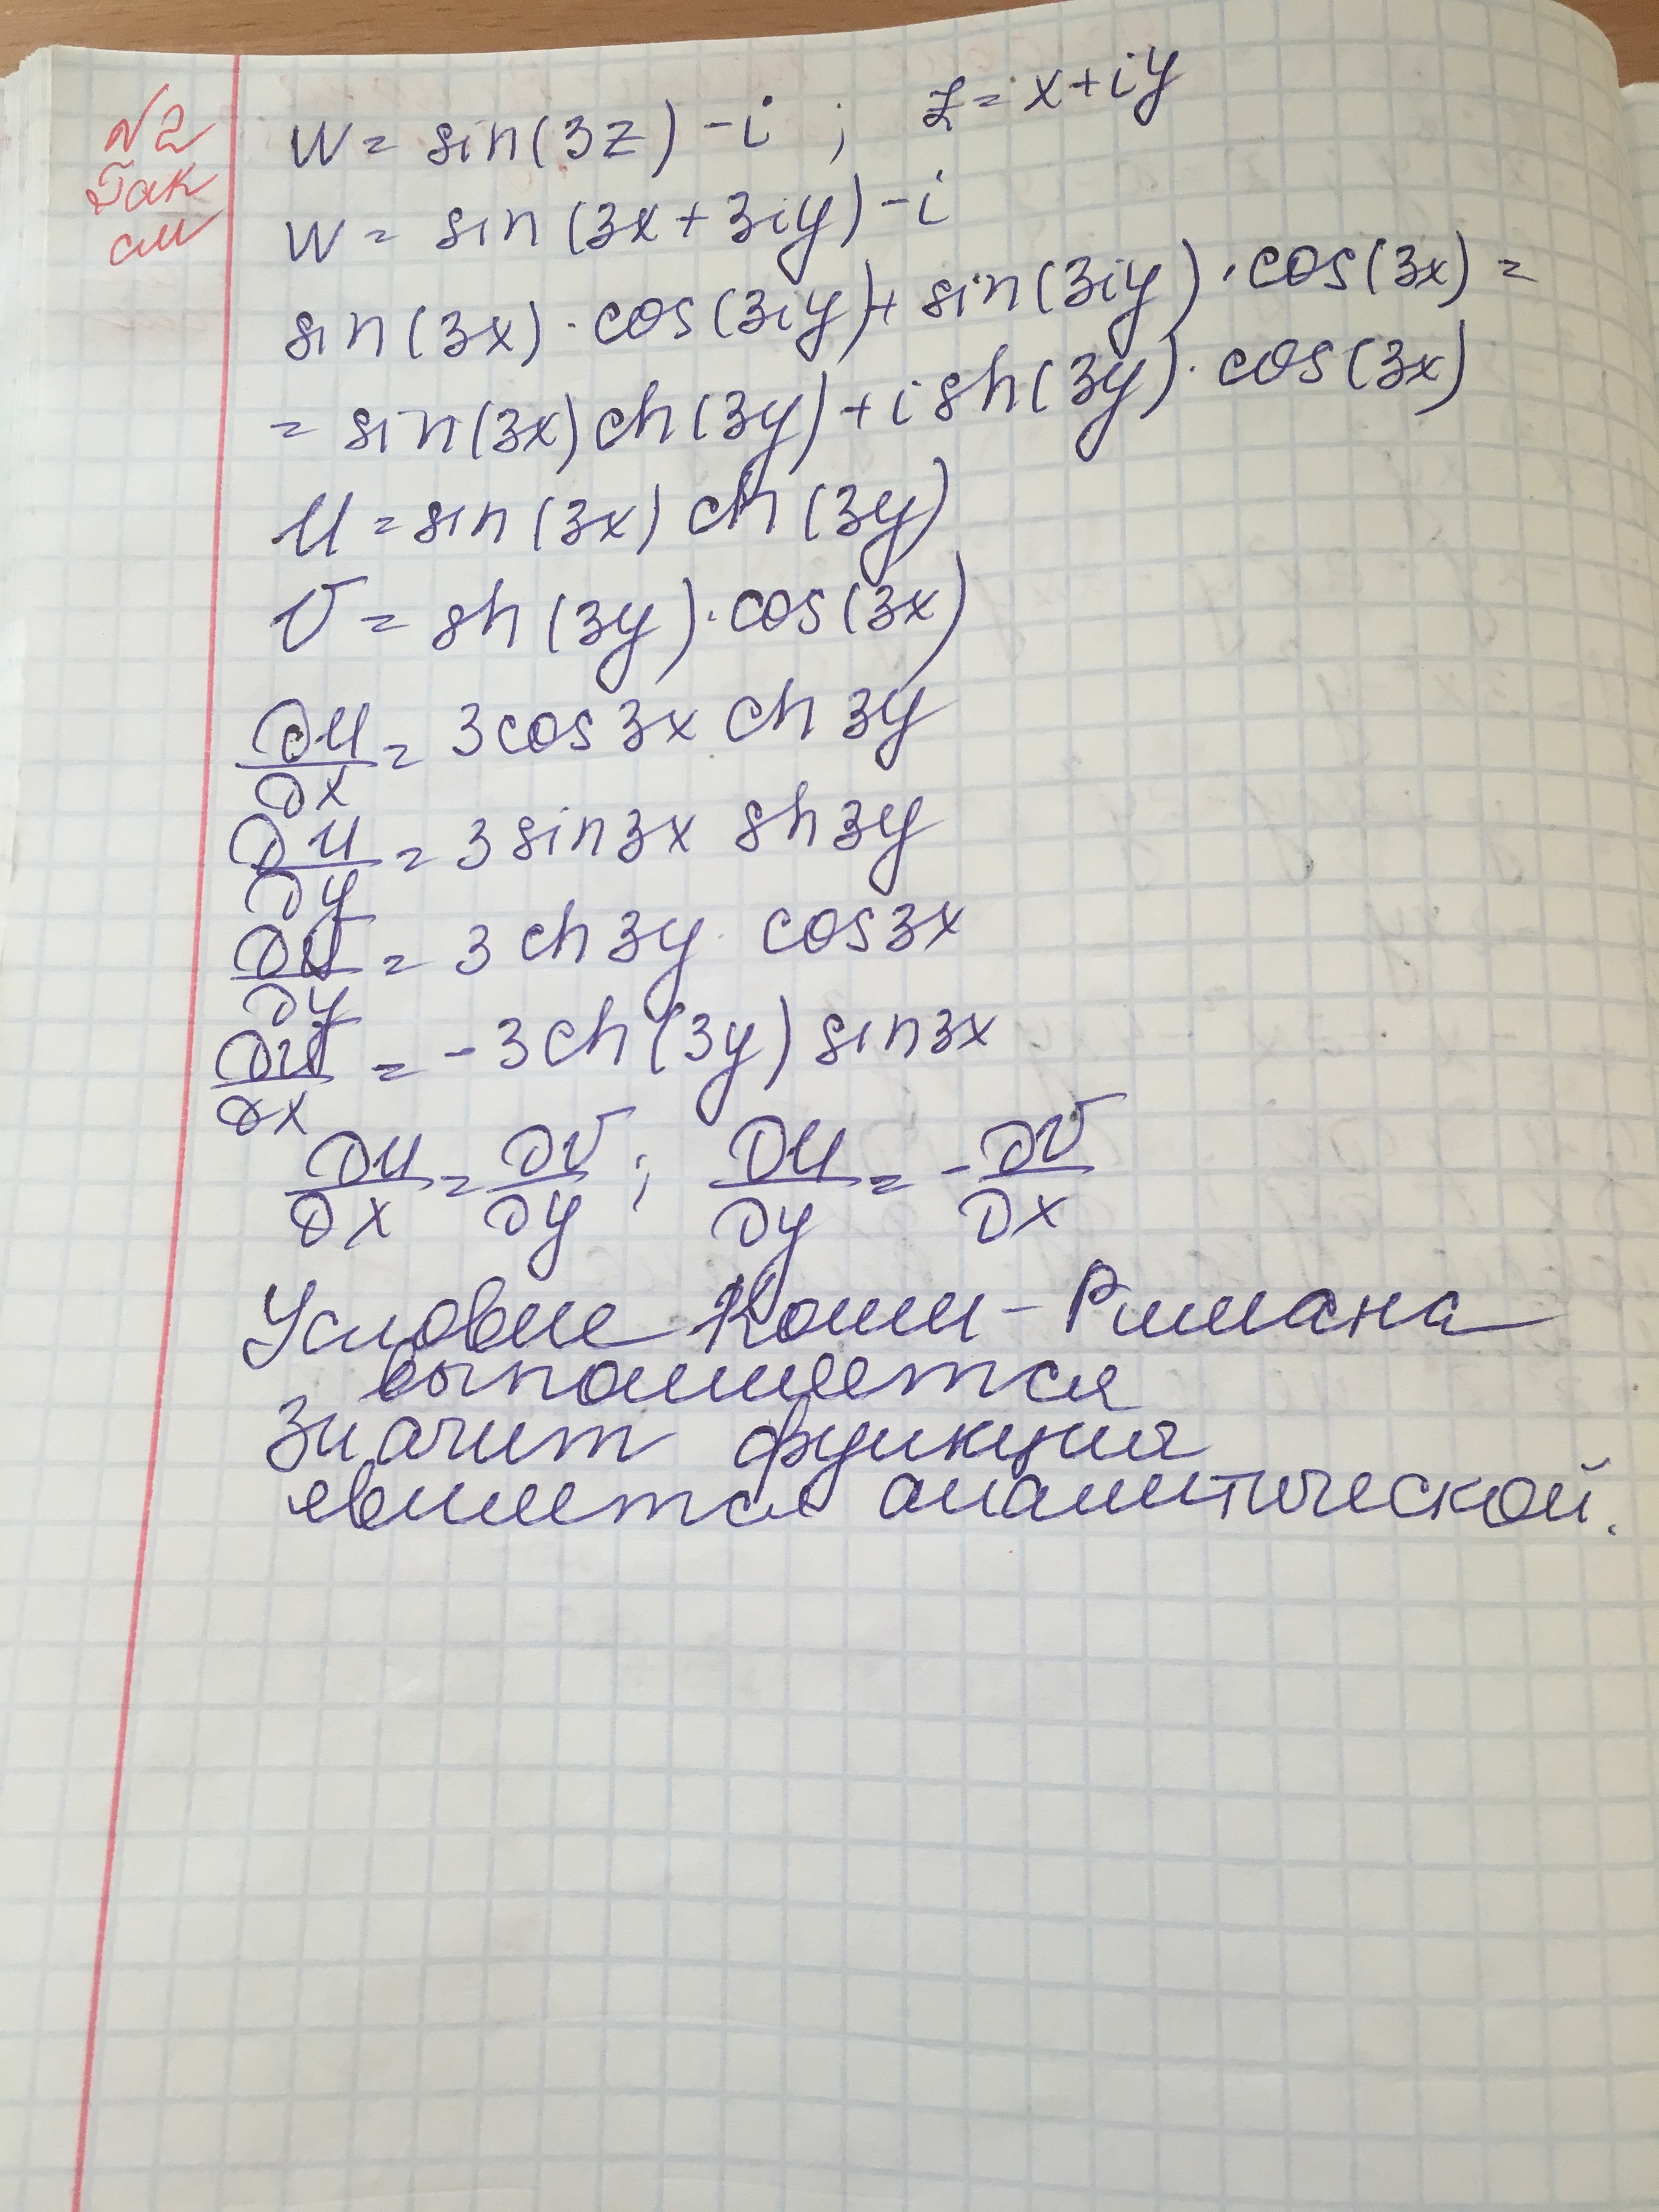 N2
Так
см
W = sin(3z) - i ; z = x+iy
W = sin(3x + 3iy) - i
sin(3x) · cos(3iy) + sin(3iy) · cos(3x) =
= sin(3x) ch(3y) + i sh(3y) · cos(3x)
U = sin(3x) ch(3y)
V = sh(3y) · cos(3x)
∂U/∂x = 3cos3x ch3y
∂U/∂y = 3 sin3x sh3y
∂V/∂y = 3 ch3y · cos3x
∂V/∂x = -3ch(3y) sin3x
∂U/∂x = ∂V/∂y ; ∂U/∂y = -∂V/∂x
Условие Коши - Римана
выполняется
Значит функция
является аналитической.